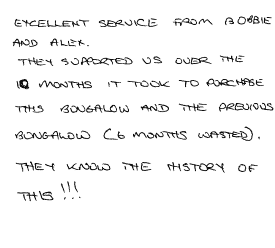 EXCELLENT SERVICE FROM BOBBIE
AND ALEX.
THEY SUPPORTED US OVER THE
10 MONTHS IT TOOK TO PURCHASE
THIS BUNGALOW AND THE PREVIOUS
BUNGALOW (6 MONTHS WASTED).
THEY KNOW THE HISTORY OF
THIS!!!